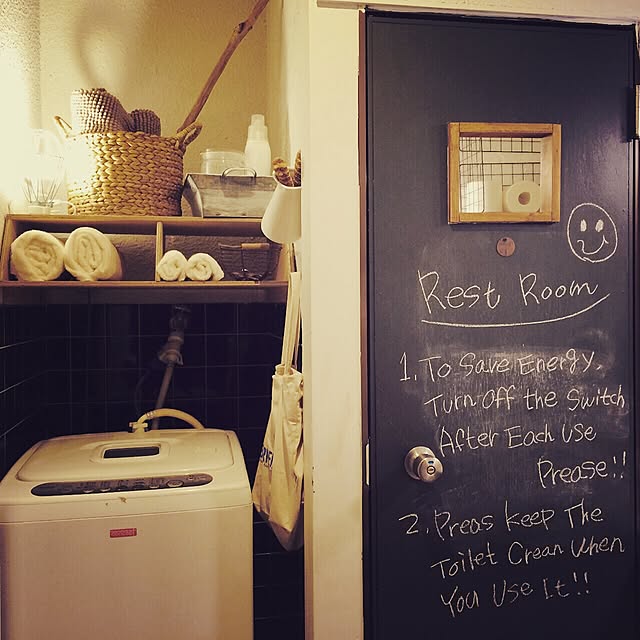 Rest Room
1. To Save Energy,
Turn off the Switch
After Each Use
Prease!!
2. Preas Keep The
Toilet Crean When
You Use It!!